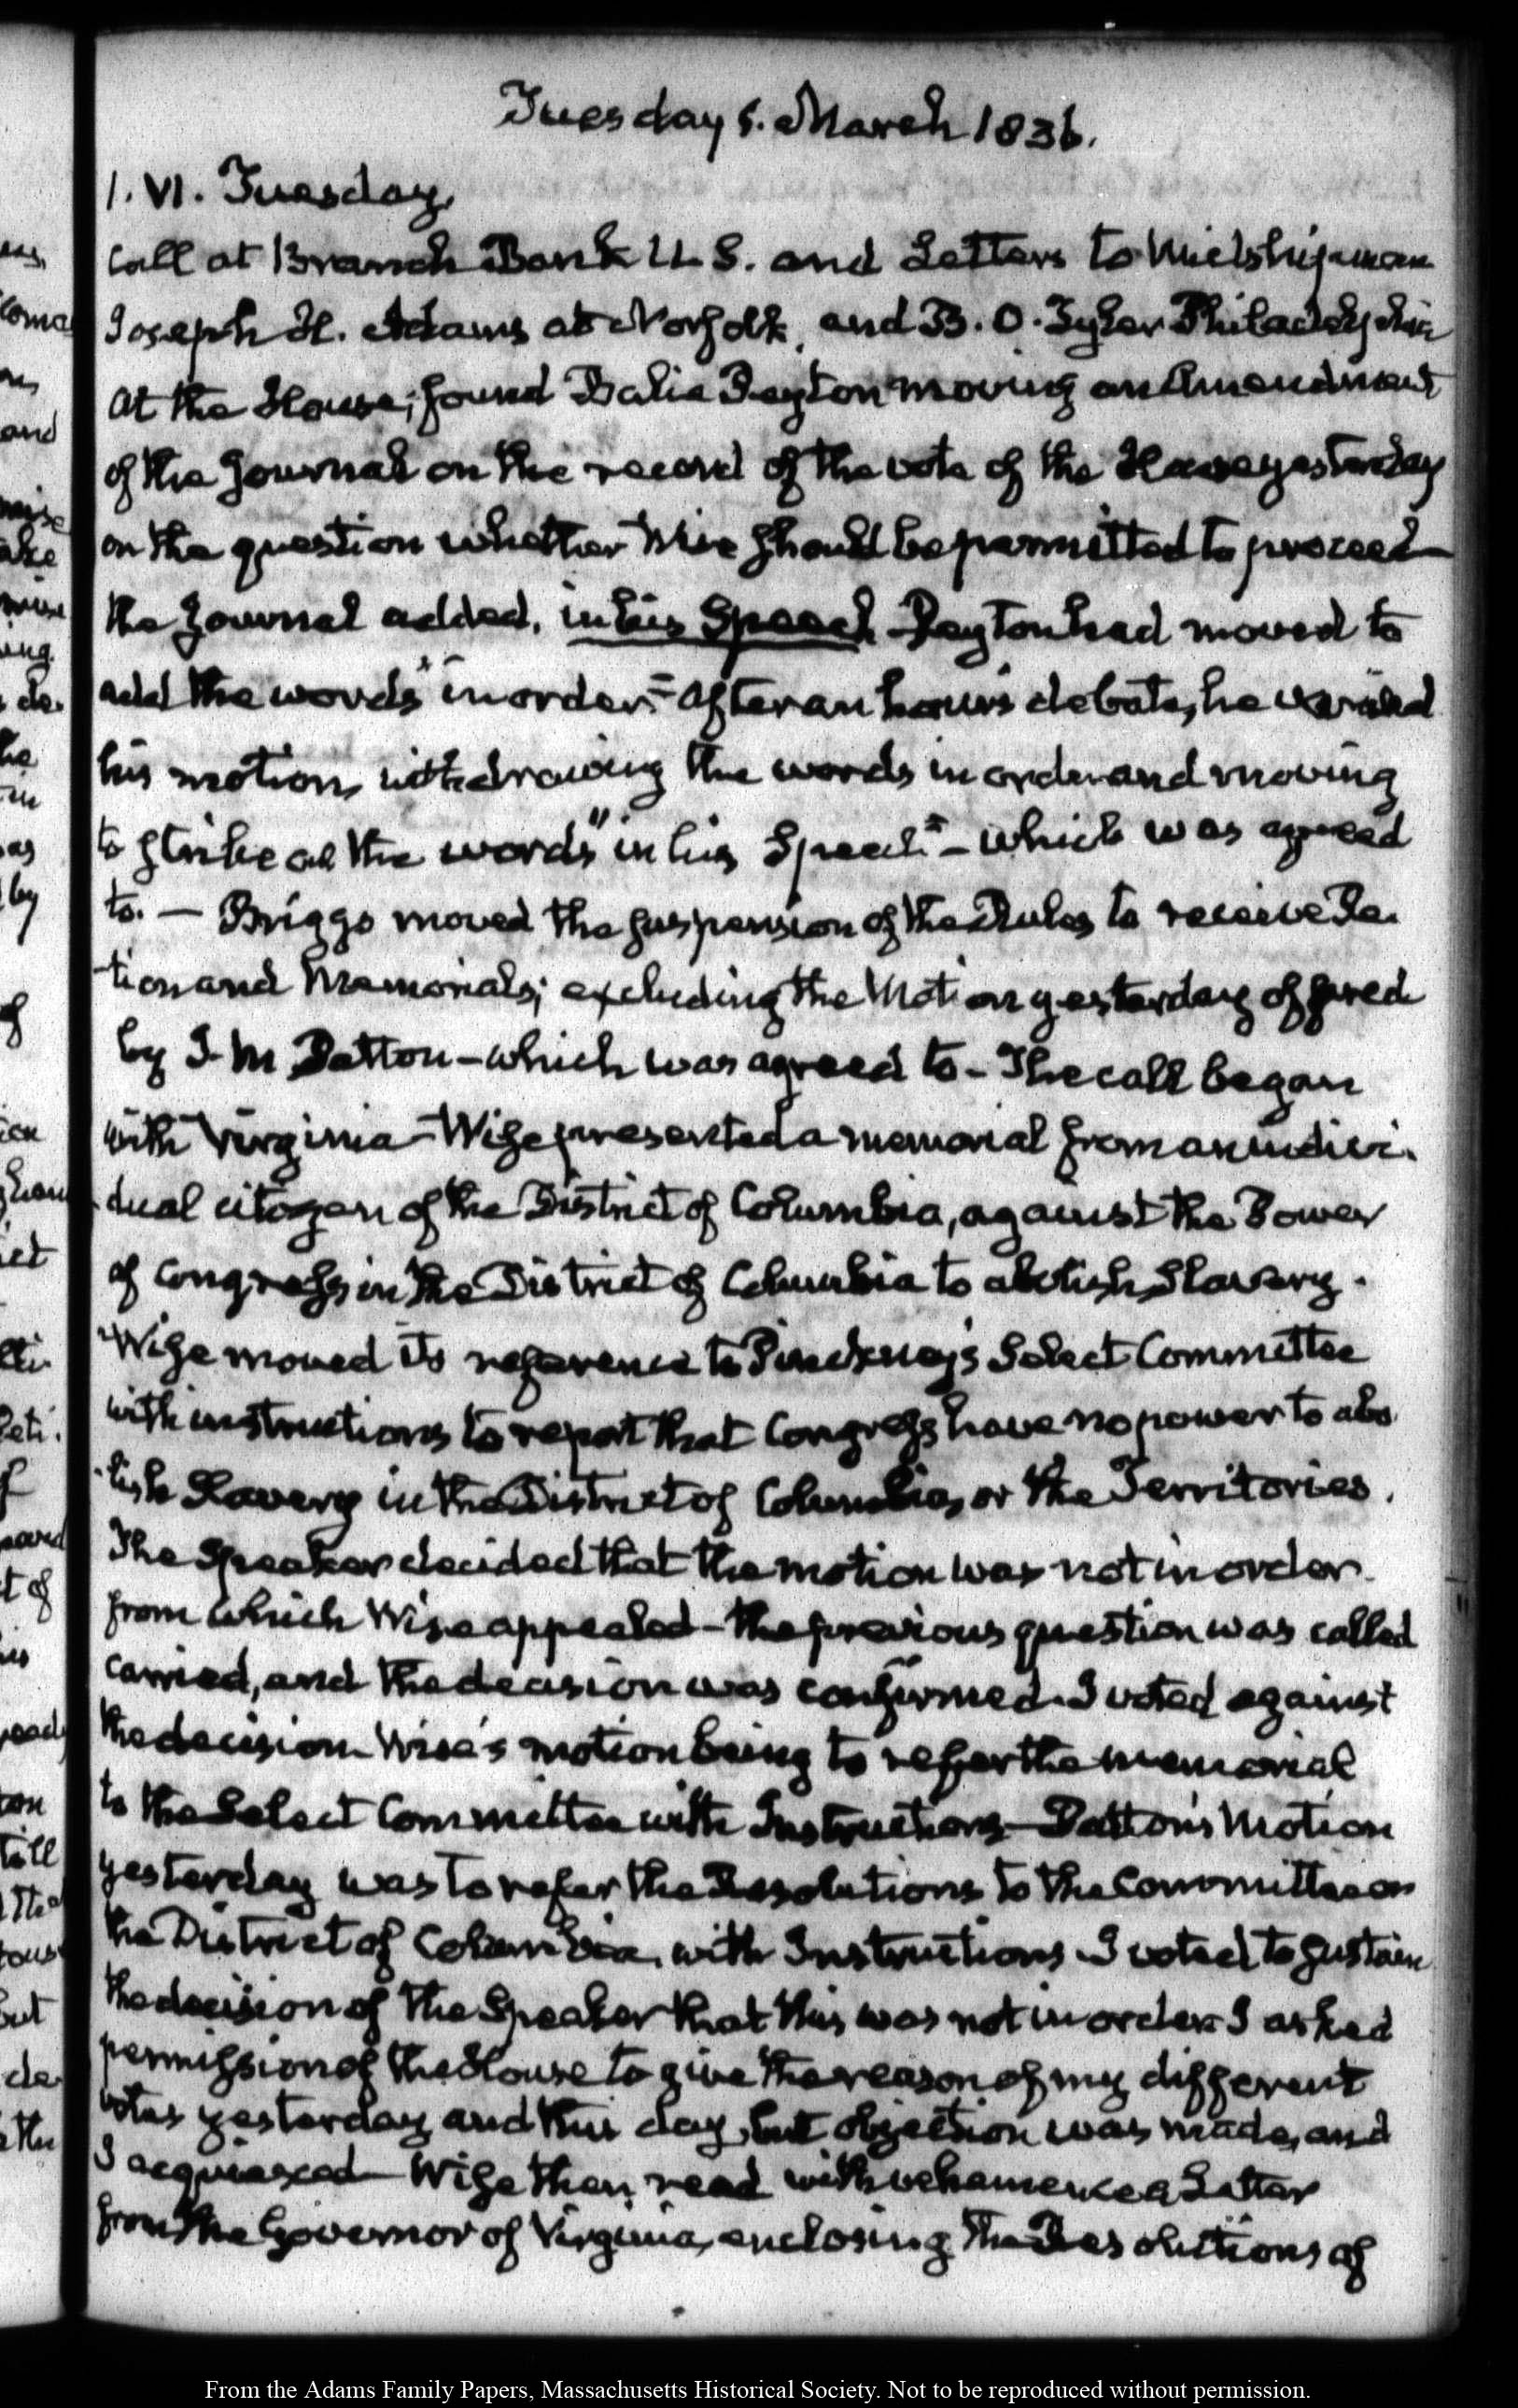 Tuesday 1. March 1836.
1. VI. Tuesday.
Call at Branch Bank U.S. and Letters to Midshipman
Joseph H. Adams at Norfolk, and B. O. Tyler Philadelphia
At the House; found Balie Peyton moving an Amendment
of the Journal on the record of the vote of the House yesterday
on the question whether Wise should be permitted to proceed—
the Journal added, in his Speech Peyton had moved to
add the words "in order." After an hour's debate, he varied
his motion, withdrawing the words in order and moving
to strike out the words "in his Speech" – which was agreed
to. — Briggs moved the suspension of the Rules to receive Pe-
tion and Memorials; excluding the Motion yesterday offered
by J. M Patton – which was agreed to – The call began
with Virginia – Wise presented a memorial from an indivi-
dual citizen of the District of Columbia, against the Power
of Congress in the District of Columbia to abolish Slavery.
Wise moved its reference to Pinckney's Select Committee
with instructions to report that Congress have no power to abo-
lish Slavery in the District of Columbia, or the Territories.
The Speaker decided that the motion was not in order.
from which Wise appealed – the previous question was called
carried, and the decision was confirmed. I voted against
the decision. Wise's motion being to refer the memorial
to the Select Committee with Instructions – Patton's Motion
yesterday was to refer the Resolutions to the Committee on
the District of Columbia, with Instructions. I voted to sustain
the decision of the Speaker that this was not in order. I asked
permission of the House to give the reason of my different
votes yesterday and this day, but objection was made, and
I acquiesced – Wise then read with vehemence a Letter
from the Governor of Virginia, enclosing the Resolutions of
From the Adams Family Papers, Massachusetts Historical Society. Not to be reproduced without permission.